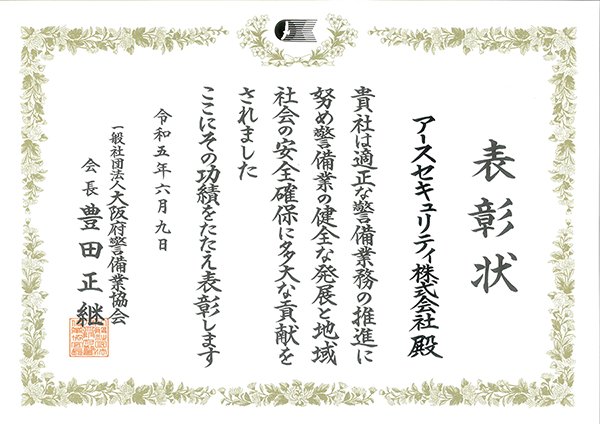 表彰状
アースセキュリティ株式会社 殿
貴社は適正な警備業務の推進に
努め警備業の健全な発展と地域
社会の安全確保に多大な貢献を
されました
ここにその功績をたたえ表彰します
令和五年六月九日
一般社団法人大阪府警備業協会
会長 豊田正継